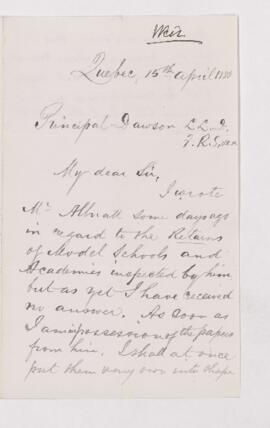 Weir
Quebec, 15th April 1880
Principal Dawson LL.D.
F.R.S, &c
My dear Sir,
I wrote
Mr. Allnatt some days ago
in regard to the Returns
of Model Schools and
Academies inspected by him
but as yet I have received
no answer. As soon as
I am in possession of the papers
from him, I shall at once
put them into shape